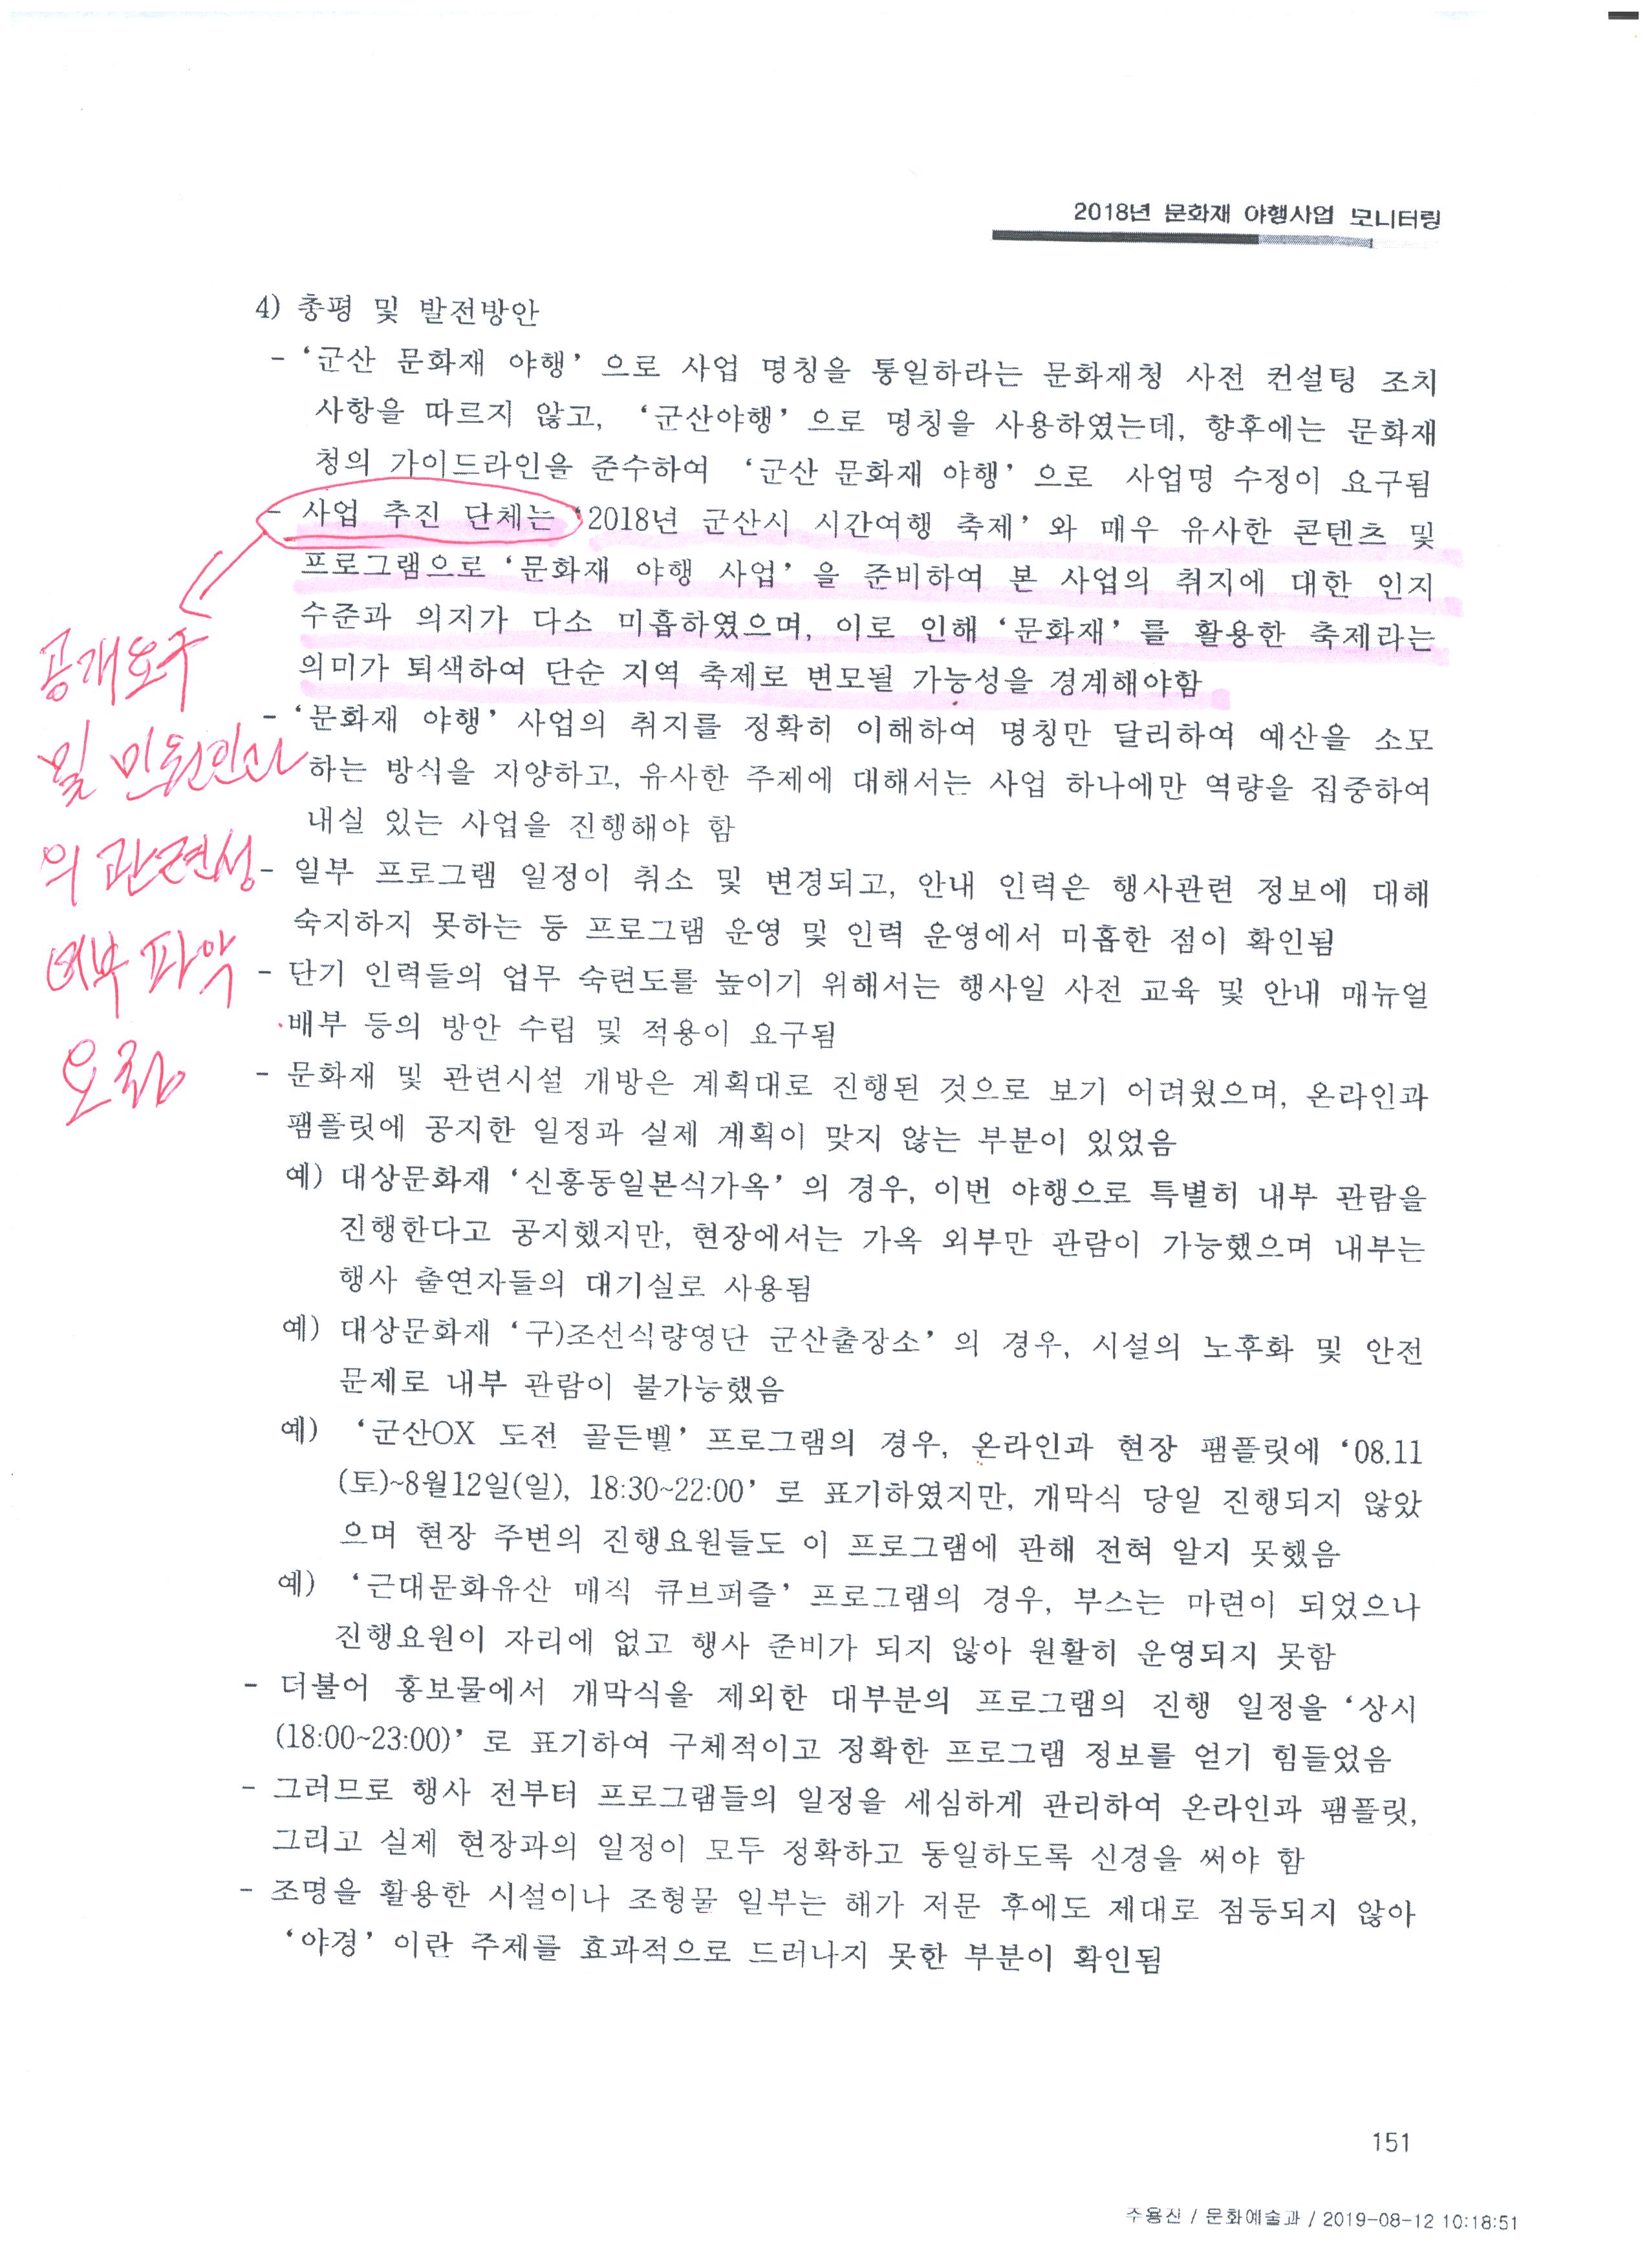 2018년 문화재 야행사업 모니터링
4) 총평 및 발전방안
- ‘군산 문화재 야행’ 으로 사업 명칭을 통일하라는 문화재청 사전 컨설팅 조치
사항을 따르지 않고, ‘군산야행’ 으로 명칭을 사용하였는데, 향후에는 문화재
청의 가이드라인을 준수하여 ‘군산 문화재 야행’ 으로 사업명 수정이 요구됨
- 사업 추진 단체는 ‘2018년 군산시 시간여행 축제’ 와 매우 유사한 콘텐츠 및
프로그램으로 ‘문화재 야행 사업’ 을 준비하여 본 사업의 취지에 대한 인지
수준과 의지가 다소 미흡하였으며, 이로 인해 ‘문화재’ 를 활용한 축제라는
의미가 퇴색하여 단순 지역 축제로 변모될 가능성을 경계해야함
- ‘문화재 야행’ 사업의 취지를 정확히 이해하여 명칭만 달리하여 예산을 소모
하는 방식을 지양하고, 유사한 주제에 대해서는 사업 하나에만 역량을 집중하여
내실 있는 사업을 진행해야 함
- 일부 프로그램 일정이 취소 및 변경되고, 안내 인력은 행사관련 정보에 대해
숙지하지 못하는 등 프로그램 운영 및 인력 운영에서 미흡한 점이 확인됨
- 단기 인력들의 업무 숙련도를 높이기 위해서는 행사일 사전 교육 및 안내 매뉴얼
배부 등의 방안 수립 및 적용이 요구됨
- 문화재 및 관련시설 개방은 계획대로 진행된 것으로 보기 어려웠으며, 온라인과
팸플릿에 공지한 일정과 실제 계획이 맞지 않는 부분이 있었음
예) 대상문화재 ‘신흥동일본식가옥’ 의 경우, 이번 야행으로 특별히 내부 관람을
진행한다고 공지했지만, 현장에서는 가옥 외부만 관람이 가능했으며 내부는
행사 출연자들의 대기실로 사용됨
예) 대상문화재 ‘구)조선식량영단 군산출장소’ 의 경우, 시설의 노후화 및 안전
문제로 내부 관람이 불가능했음
예) ‘군산OX 도전 골든벨’ 프로그램의 경우, 온라인과 현장 팸플릿에 ‘08.11
(토)~8월12일(일), 18:30~22:00’ 로 표기하였지만, 개막식 당일 진행되지 않았
으며 현장 주변의 진행요원들도 이 프로그램에 관해 전혀 알지 못했음
예) ‘근대문화유산 매직 큐브퍼즐’ 프로그램의 경우, 부스는 마련이 되었으나
진행요원이 자리에 없고 행사 준비가 되지 않아 원활히 운영되지 못함
- 더불어 홍보물에서 개막식을 제외한 대부분의 프로그램의 진행 일정을 ‘상시
(18:00~23:00)’ 로 표기하여 구체적이고 정확한 프로그램 정보를 얻기 힘들었음
- 그러므로 행사 전부터 프로그램들의 일정을 세심하게 관리하여 온라인과 팸플릿,
그리고 실제 현장과의 일정이 모두 정확하고 동일하도록 신경을 써야 함
- 조명을 활용한 시설이나 조형물 일부는 해가 저문 후에도 제대로 점등되지 않아
‘야경’ 이란 주제를 효과적으로 드러나지 못한 부분이 확인됨
공개요구
및 민원인과
의 관련성
여부 파악
요함
151
주용진 / 문화예술과 / 2019-08-12 10:18:51